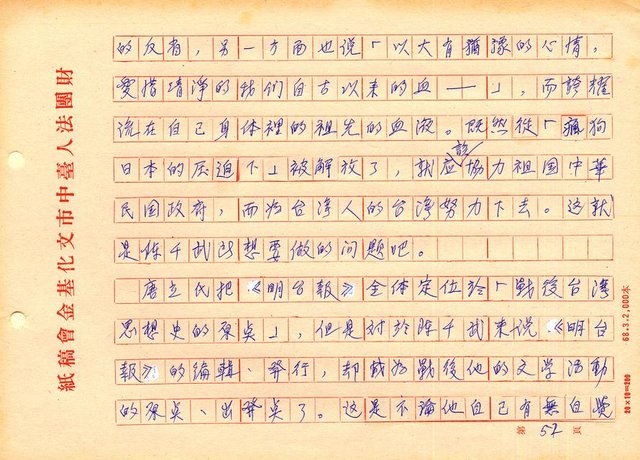 的反省，另一方面也说「以大有猶豫的心情，
愛惜清淨的我們自古以来的血——」，而誇耀
流在自己身体裡的祖先的血液。既然從「瘋狗
日本的压迫下」被解放了，就应該協力祖国中華
民国政府，而為台湾人的台湾努力下去。这就
是陈千武所想要做的问題吧。
唐立氏把《明台報》全体定位於「戰後台湾
思想史的原点」，但是对於陈千武来说，《明台
報》的编輯、発行，却成為戰後他的文学活動
的原点、出発点了。这是不論他自己有無自覚
第 52 頁
財團法人臺中市文化基金會稿紙
68.3.2,000本
20×10=200